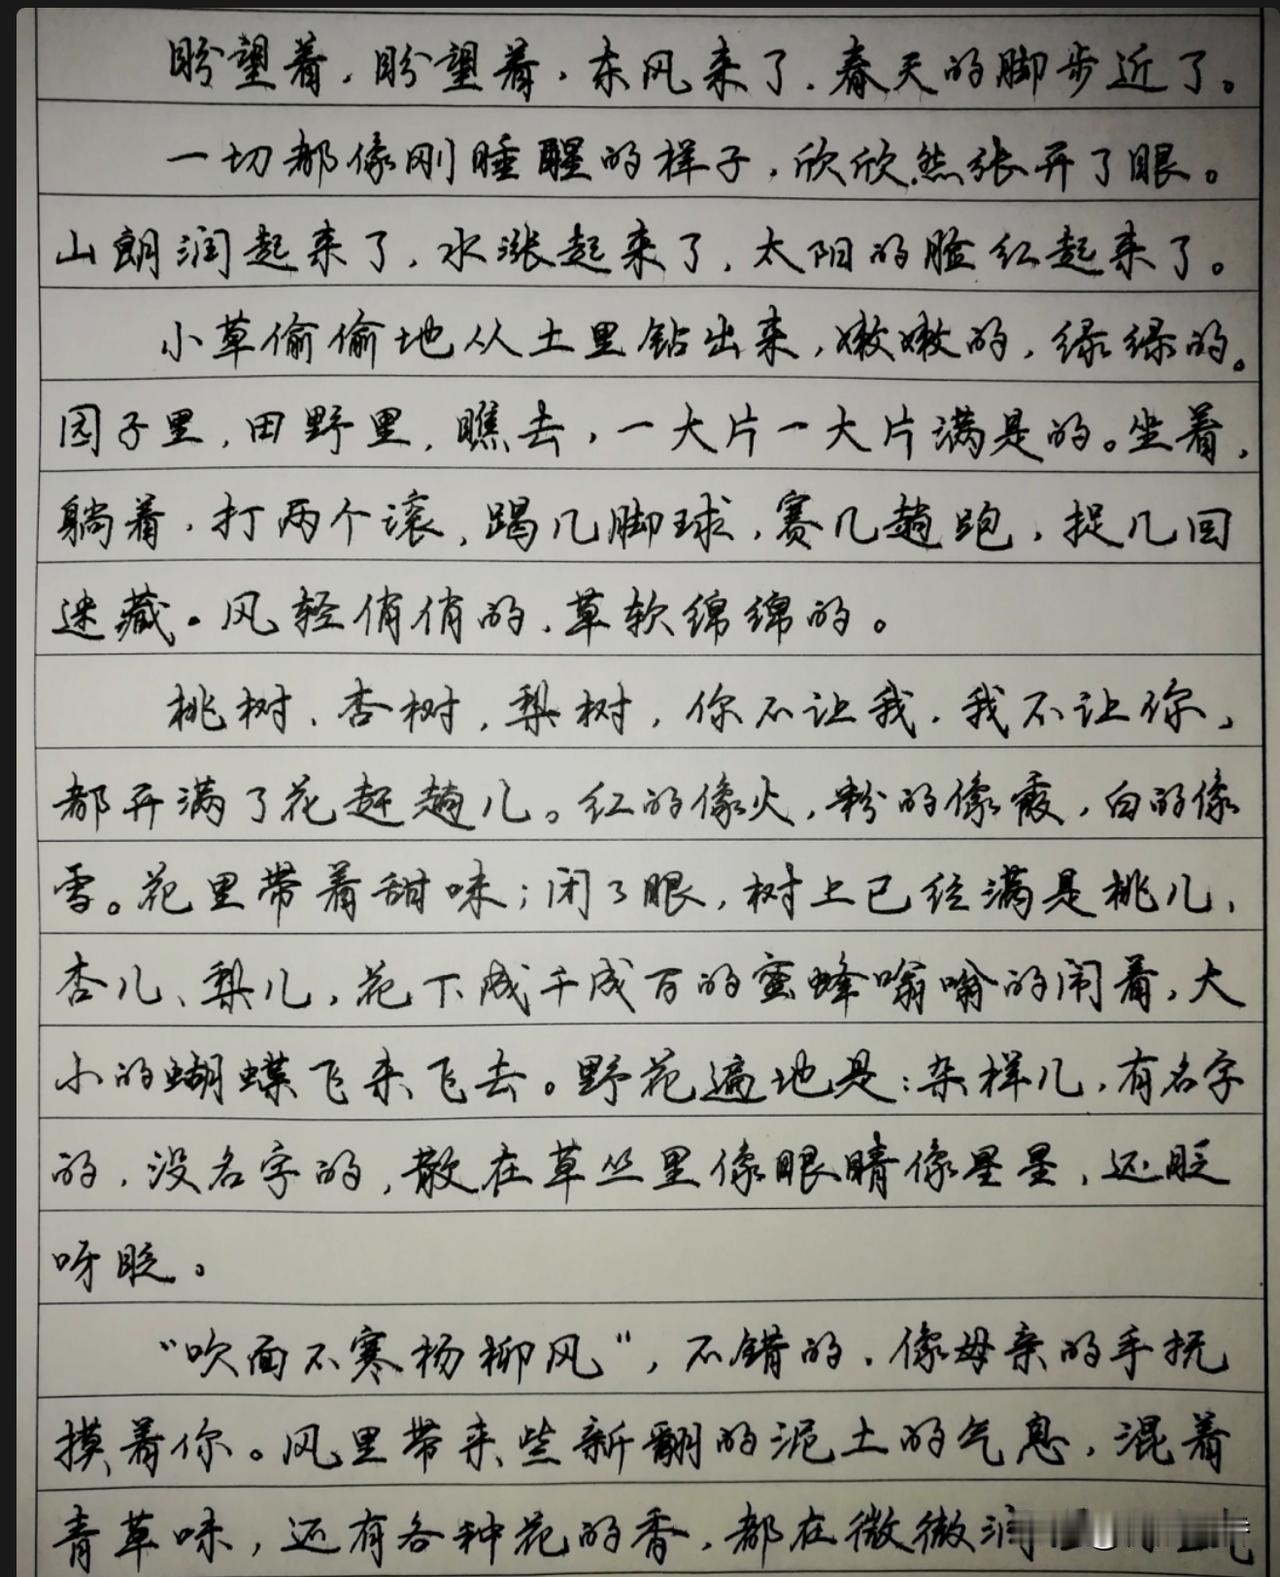 盼望着，盼望着，东风来了，春天的脚步近了。
一切都像刚睡醒的样子，欣欣然张开了眼。
山朗润起来了，水涨起来了，太阳的脸红起来了。
小草偷偷地从土里钻出来，嫩嫩的，绿绿的。
园子里，田野里，瞧去，一大片一大片满是的。坐着，
躺着，打两个滚，踢几脚球，赛几趟跑，捉几回
迷藏。风轻俏俏的，草软绵绵的。
桃树、杏树，梨树，你不让我，我不让你，
都开满了花赶趟儿。红的像火，粉的像霞，白的像
雪。花里带着甜味；闭了眼，树上已经满是桃儿、
杏儿、梨儿，花下成千成百的蜜蜂嗡嗡的闹着，大
小的蝴蝶飞来飞去。野花遍地是：杂样儿，有名字
的，没名字的，散在草丛里像眼睛像星星，还眨
呀眨。
“吹面不寒杨柳风”，不错的，像母亲的手抚
摸着你。风里带来些新翻的泥土的气息，混着
青草味，还有各种花的香，都在微微润